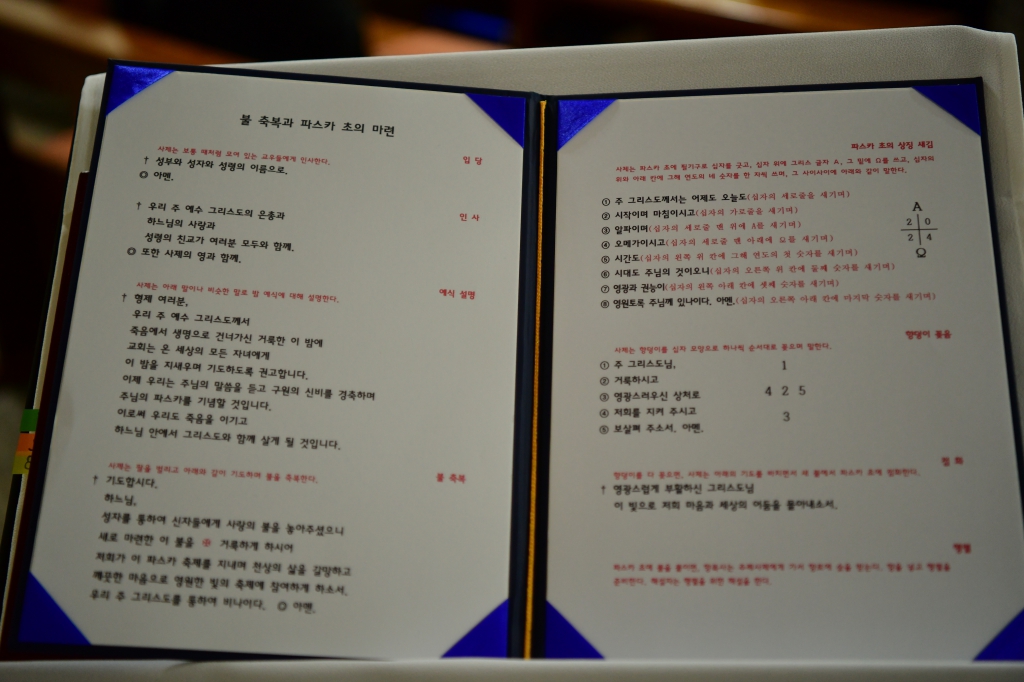 불 축복과 파스카 초의 마련
입 당
사제는 보통 때처럼 모여 있는 교우들에게 인사한다.
† 성부와 성자와 성령의 이름으로.
◎ 아멘.
인 사
† 우리 주 예수 그리스도의 은총과
하느님의 사랑과
성령의 친교가 여러분 모두와 함께.
◎ 또한 사제의 영과 함께.
예식 설명
사제는 아래 말이나 비슷한 말로 밤 예식에 대해 설명한다.
† 형제 여러분,
우리 주 예수 그리스도께서
죽음에서 생명으로 건너가신 거룩한 이 밤에
교회는 온 세상의 모든 자녀에게
이 밤을 지새우며 기도하도록 권고합니다.
이제 우리는 주님의 말씀을 듣고 구원의 신비를 경축하며
주님의 파스카를 기념할 것입니다.
이로써 우리도 죽음을 이기고
하느님 안에서 그리스도와 함께 살게 될 것입니다.
불 축복
사제는 팔을 벌리고 아래와 같이 기도하며 불을 축복한다.
† 기도합시다.
하느님,
성자를 통하여 신자들에게 사랑의 불을 놓아주셨으니
새로 마련한 이 불을 ※ 거룩하게 하시어
저희가 이 파스카 축제를 지내며 천상의 삶을 갈망하고
깨끗한 마음으로 영원한 빛의 축제에 참여하게 하소서.
우리 주 그리스도를 통하여 비나이다. ◎ 아멘.
파스카 초의 상징 새김
사제는 파스카 초에 필기구로 십자를 긋고, 십자 위에 그리스 글자 A, 그 밑에 Ω를 쓰고, 십자의
위와 아래 칸에 그해 연도의 네 숫자를 한 자씩 쓰며, 그 사이사이에 아래와 같이 말한다.
① 주 그리스도께서는 어제도 오늘도(십자의 세로줄을 새기며)
② 시작이며 마침이시고(십자의 가로줄을 새기며)
③ 알파이며(십자의 세로줄 맨 위에 A를 새기며)
④ 오메가이시고(십자의 세로줄 맨 아래에 Ω를 새기며)
⑤ 시간도(십자의 왼쪽 위 칸에 그해 연도의 첫 숫자를 새기며)
⑥ 시대도 주님의 것이오니(십자의 오른쪽 위 칸에 둘째 숫자를 새기며)
⑦ 영광과 권능이(십자의 왼쪽 아래 칸에 셋째 숫자를 새기며)
⑧ 영원토록 주님께 있나이다. 아멘.(십자의 오른쪽 아래 칸에 마지막 숫자를 새기며)
A
2 0
2 4
Ω
향덩이 꽂음
사제는 향덩이를 십자 모양으로 하나씩 순서대로 꽂으며 말한다.
① 주 그리스도님,
② 거룩하시고
③ 영광스러우신 상처로
④ 저희를 지켜 주시고
⑤ 보살펴 주소서. 아멘.
1
4 2 5
3
점 화
향덩이를 다 꽂으면, 사제는 아래의 기도를 바치면서 새 불에서 파스카 초에 점화한다.
† 영광스럽게 부활하신 그리스도님
이 빛으로 저희 마음과 세상의 어둠을 몰아내소서.
행렬
파스카 초에 불을 붙이면, 향 넣고 행렬을
준비한다. 해설자는 행렬을 위한 해설을 한다.